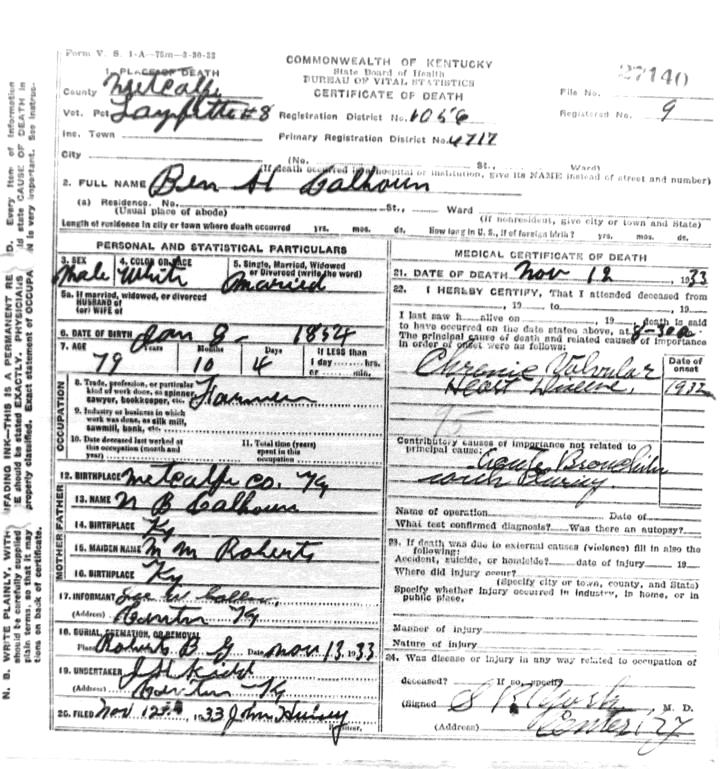 Form V. S. 1-A—75m—3-30-33
COMMONWEALTH OF KENTUCKY
State Board of Health
BUREAU OF VITAL STATISTICS
CERTIFICATE OF DEATH
27140
File No.
Registered No. 9
1. PLACE OF DEATH
County Metcalfe
Vot. Pct Layfette #8 Registration District No. 1056
Inc. Town Primary Registration District No. 4717
City (No. St., Ward)
(If death occurred in a hospital or institution, give its NAME instead of street and number)
2. FULL NAME Ben H Calhoun
(a) Residence. No. St., Ward
(Usual place of abode) (If nonresident, give city or town and State)
Length of residence in city or town where death occurred yrs. mos. ds. How long in U. S., if of foreign birth? yrs. mos. ds.
PERSONAL AND STATISTICAL PARTICULARS
3. SEX 4. COLOR OR RACE 5. Single, Married, Widowed
or Divorced (write the word)
Male White Married
5a. If married, widowed, or divorced
HUSBAND of
(or) WIFE of
6. DATE OF BIRTH Jan 8 - 1854
7. AGE Years Months Days If LESS than
1 day hrs.
or min.
79 10 4
OCCUPATION
8. Trade, profession, or particular
kind of work done, as spinner,
sawyer, bookkeeper, etc. Farmer
9. Industry or business in which
work was done, as silk mill,
sawmill, bank, etc.
10. Date deceased last worked at
this occupation (month and
year)
11. Total time (years)
spent in this
occupation
12. BIRTHPLACE Metcalfe Co. Ky
FATHER
13. NAME N B Calhoun
14. BIRTHPLACE Ky
MOTHER
15. MAIDEN NAME M M Roberts
16. BIRTHPLACE Ky
17. INFORMANT
(Address) Center Ky
18. BURIAL, CREMATION, OR REMOVAL
Place Roberts B G Date Nov 13 1933
19. UNDERTAKER J H Kidd
(Address) Center Ky
20. FILED Nov 12 1933 John
Registrar.
MEDICAL CERTIFICATE OF DEATH
21. DATE OF DEATH Nov 12, 1933
22. I HEREBY CERTIFY, That I attended deceased from
, 19 to , 19
I last saw h alive on , 19 , death is said
to have occurred on the date stated above, at 8-30
The principal cause of death and related causes of importance
in order of onset were as follows:
Date of
onset
Chronic Valvular
Heart Disease, 1932
95
Contributory causes of importance not related to
principal cause:
Acute Bronchitis
with Plurisy
Name of operation Date of
What test confirmed diagnosis? Was there an autopsy?
23. If death was due to external causes (violence) fill in also the
following:
Accident, suicide, or homicide? date of injury 19
Where did injury occur?
(Specify city or town, county, and State)
Specify whether injury occurred in industry, in home, or in
public place.
Manner of injury
Nature of injury
24. Was disease or injury in any way related to occupation of
deceased? If so, specify
(Signed) S R York, M. D.
(Address) Center Ky